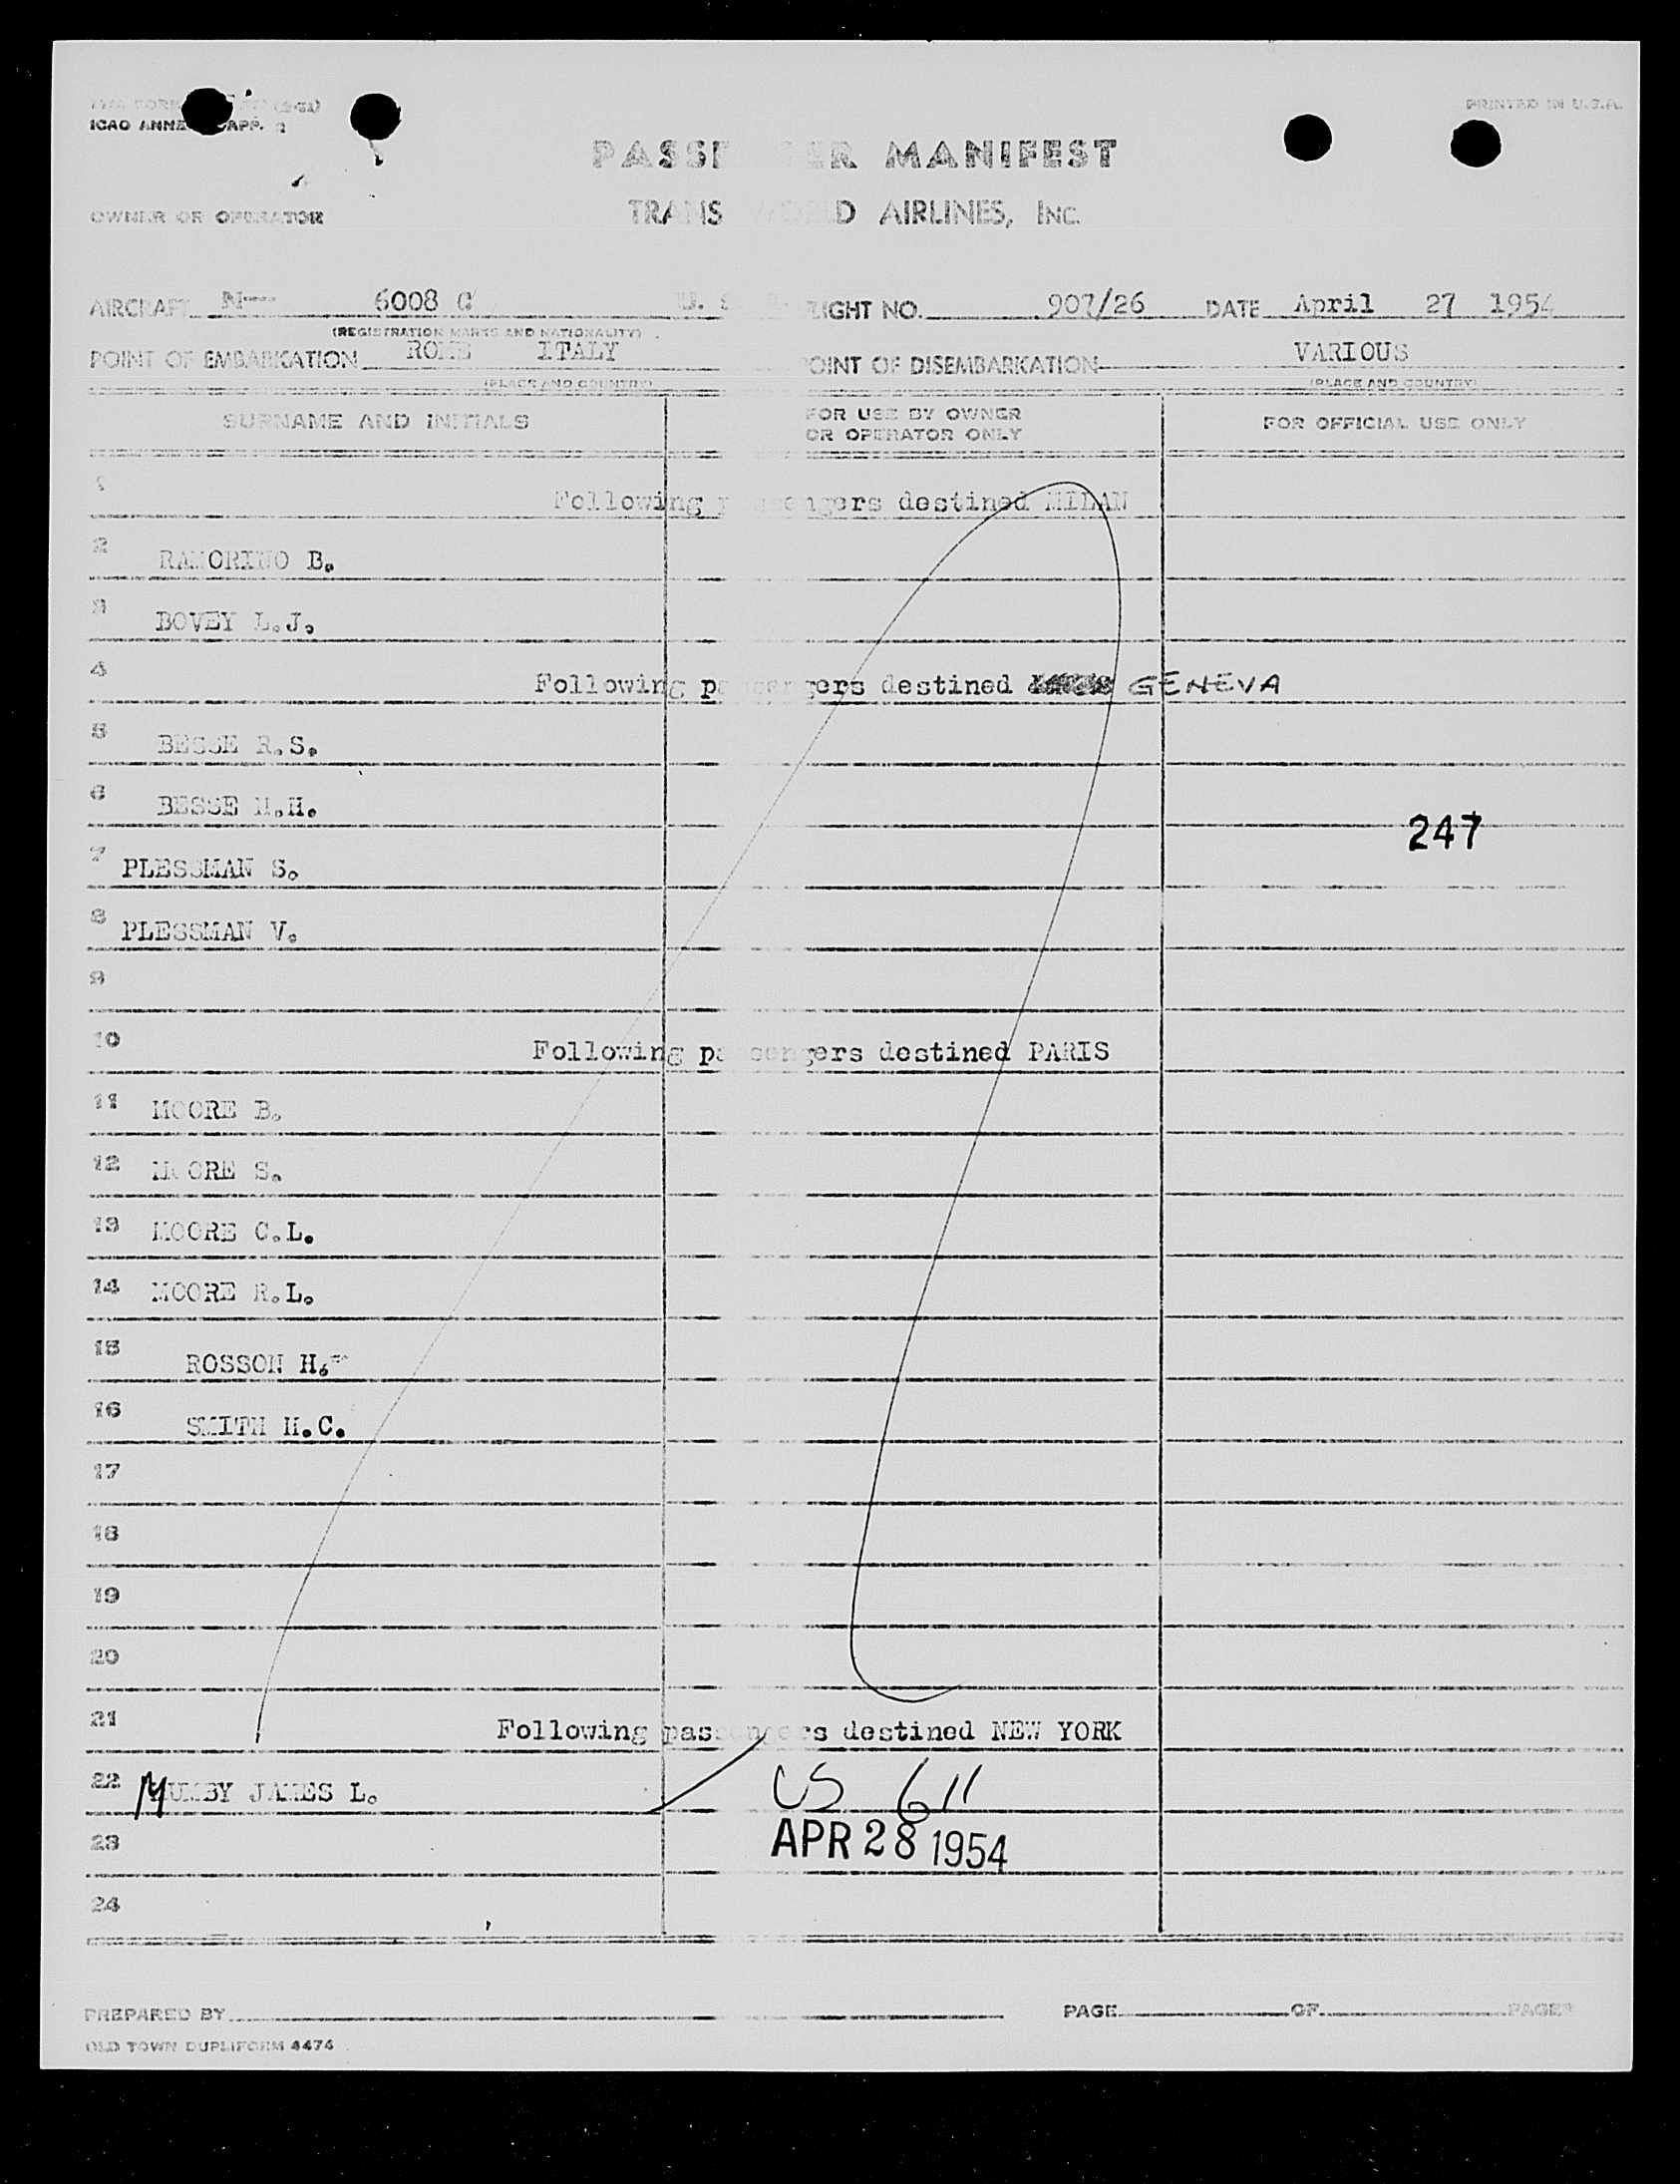 ICAO ANNE APP. 2
PRINTED IN U.S.A.
PASSENGER MANIFEST
OWNER OR OPERATOR
TRANS WORLD AIRLINES, INC.
AIRCRAFT N- 6008 C U. S. FLIGHT NO. 907/26 DATE April 27 1954
(REGISTRATION MARKS AND NATIONALITY)
POINT OF EMBARKATION ROME ITALY POINT OF DISEMBARKATION VARIOUS
(PLACE AND COUNTRY) (PLACE AND COUNTRY)
SURNAME AND INITIALS FOR USE BY OWNER OR OPERATOR ONLY FOR OFFICIAL USE ONLY
1 Following passengers destined MILAN
2 RAMORINO B.
3 BOVEY L.J.
4 Following passengers destined GENEVA
5 BESSE R.S.
6 BESSE H.
247
7 PLESSMAN S.
8 PLESSMAN V.
9
10 Following passengers destined PARIS
11 MOORE B.
12 MOORE S.
13 MOORE C.L.
14 MOORE R.L.
15 ROSSON H.
16 SMITH H.C.
17
18
19
20
21 Following passengers destined NEW YORK
22 MUMBY JAMES L. US 611
23 APR 28 1954
24
PREPARED BY PAGE OF PAGES
OLD TOWN DUPLIFORM 4474